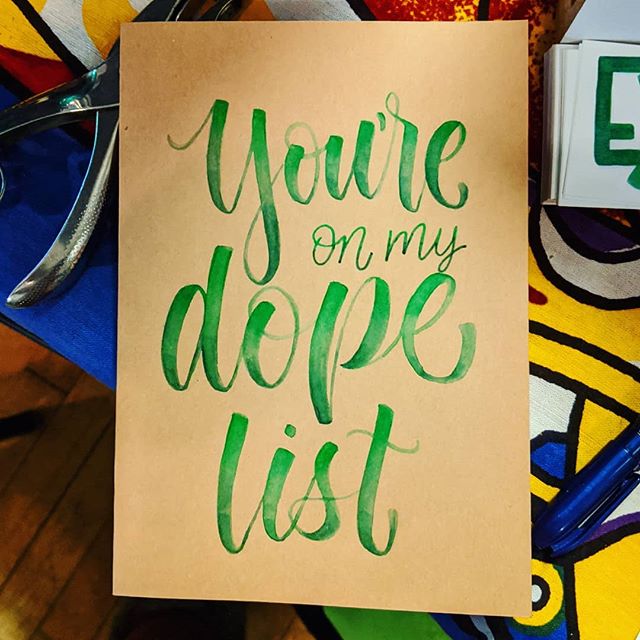 You're
on my
dope
list